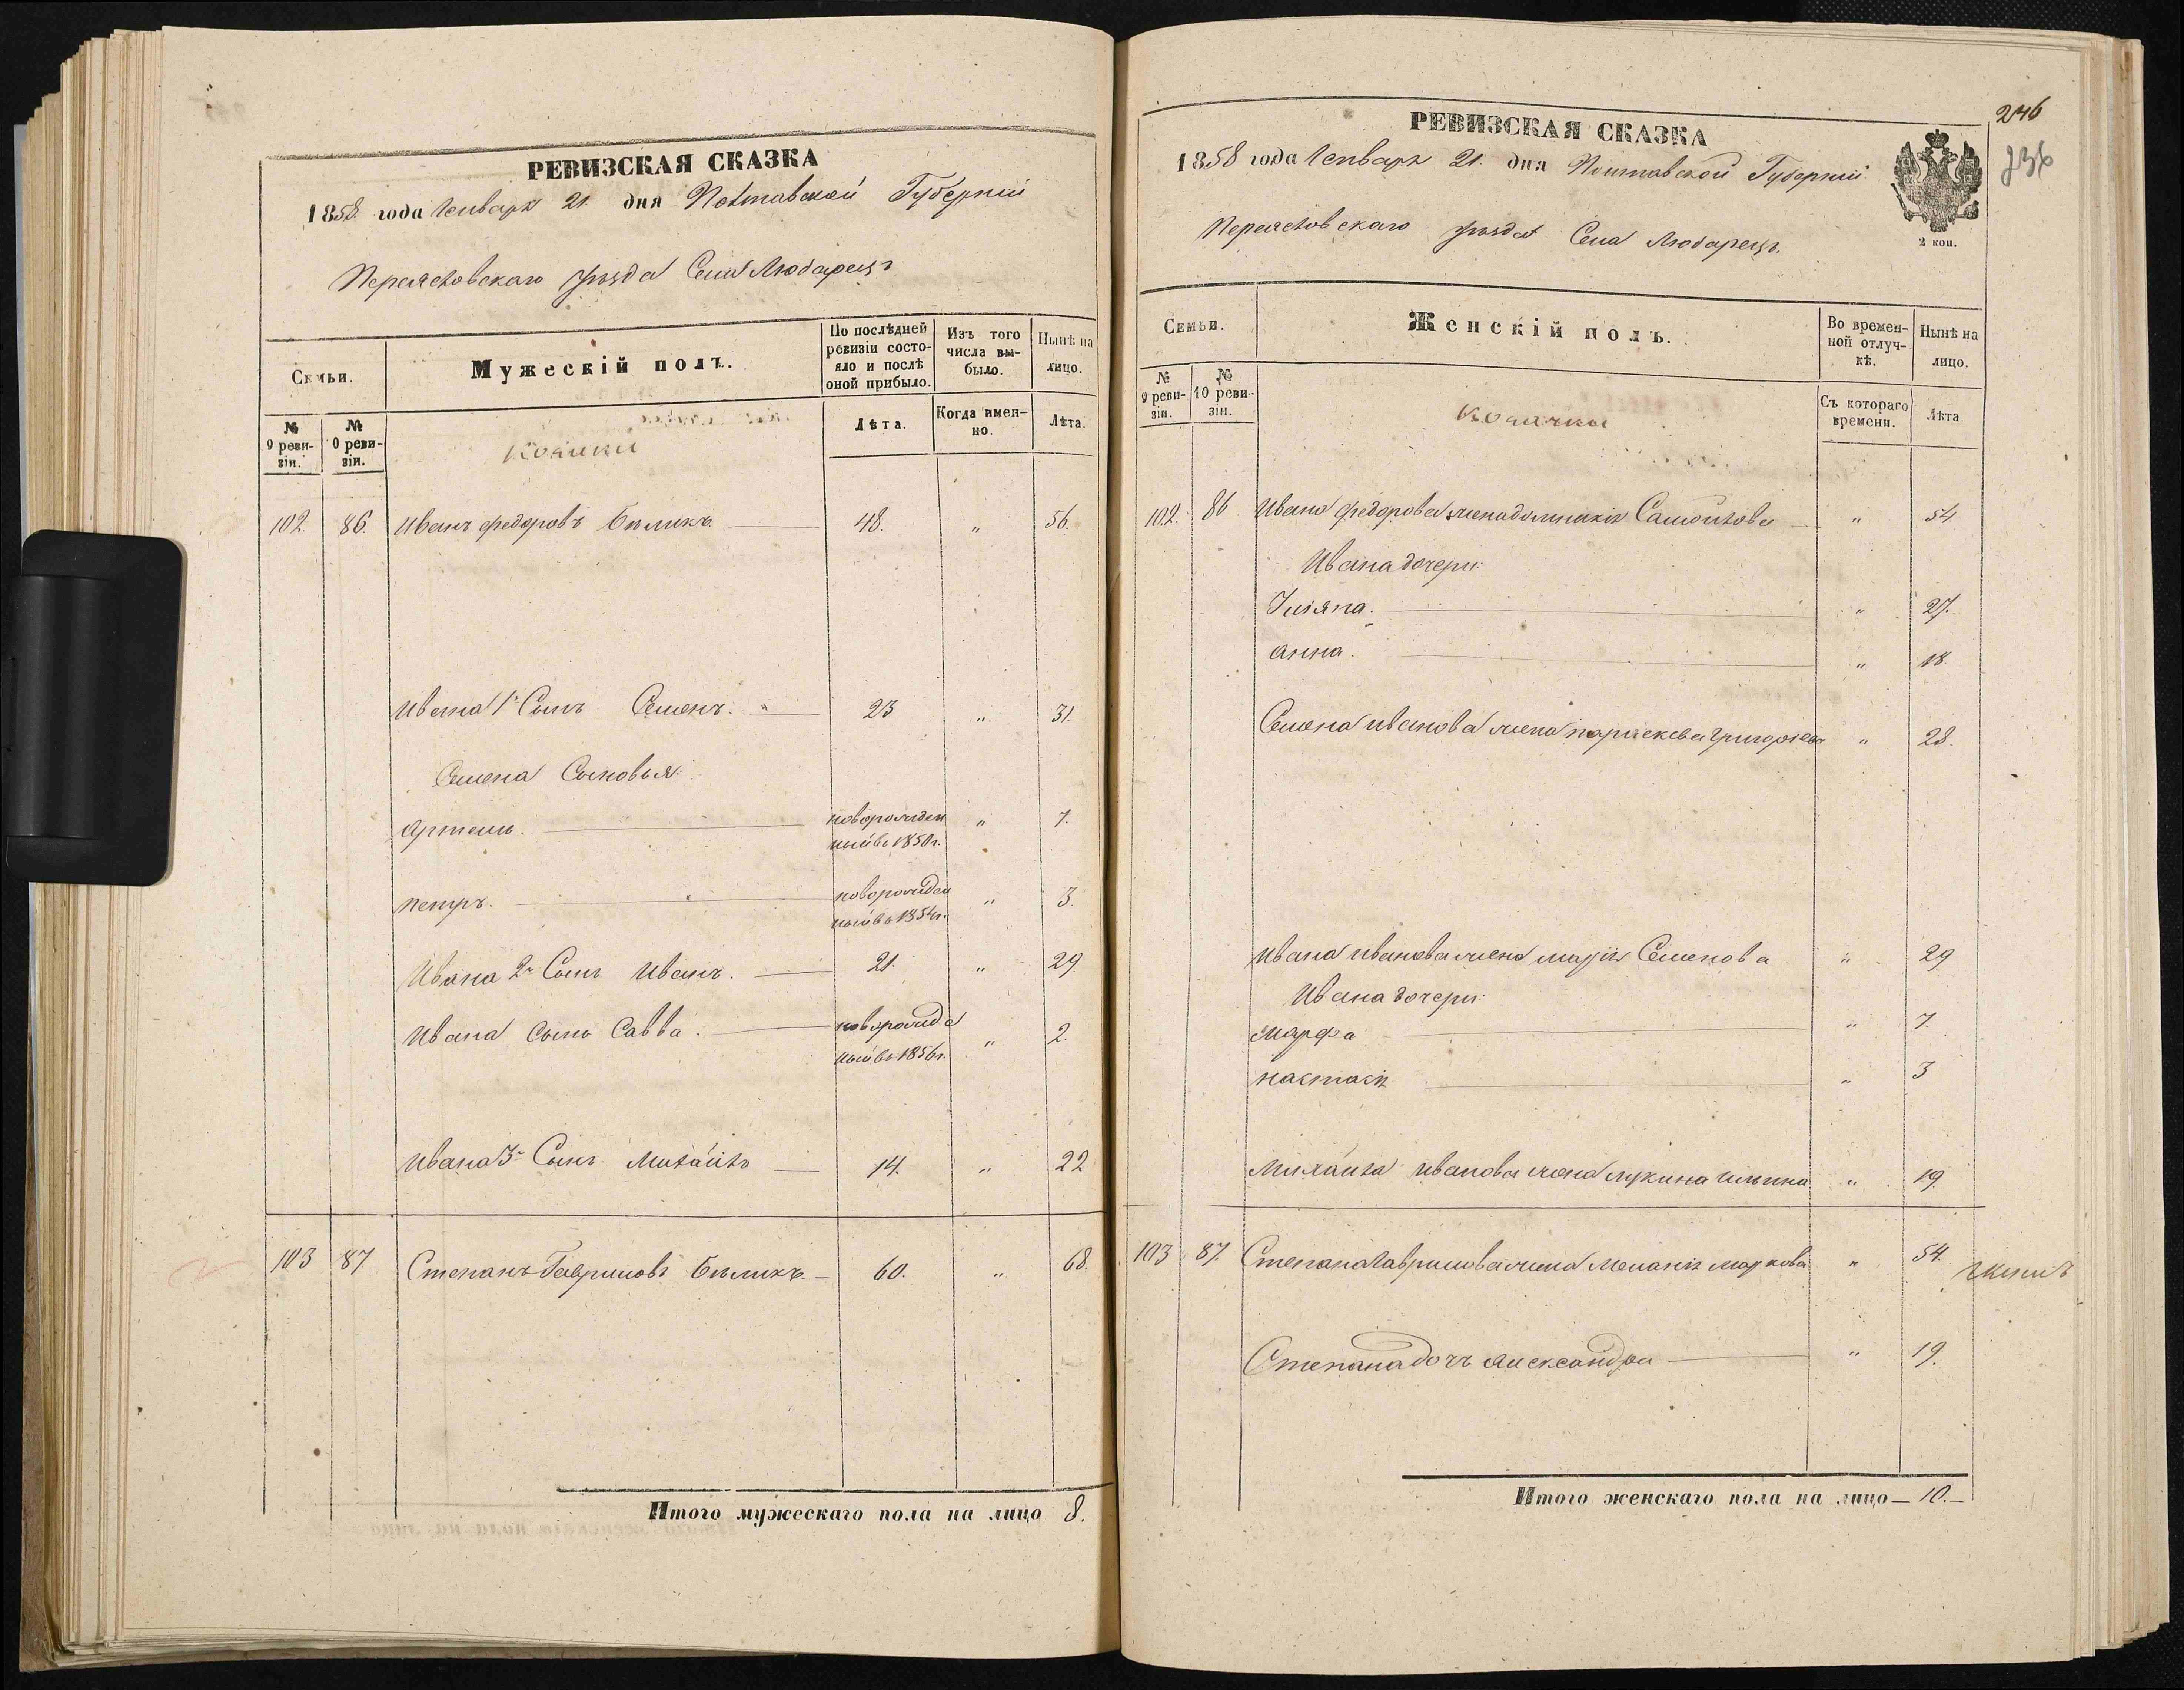 РЕВИЗСКАЯ СКАЗКА
1858 года Генваря 21 дня Полтавской Губерніи
Переяславскаго уѣзда Села Любарецъ
Семьи.
Мужескій полъ.
По послѣдней ревизіи состояло и послѣ оной прибыло.
Изъ того числа выбыло.
Нынѣ на лицо.
№ 9 ревизіи.
№ 10 ревизіи.
Козаки
Лѣта.
Когда именно.
Лѣта.
102. 86. Иванъ Федоровъ Бѣликъ 48. " 56.
Ивана 1й Сынъ Семенъ. " 23 " 31.
Семена Сыновья:
Артемъ. новорожденный въ 1850 г. " 7.
Петръ. новорожденный въ 1854 г. " 3.
Ивана 2й Сынъ Иванъ. 21. " 29
Ивана Сынъ Савва. новорожде ный въ 1856 г. " 2.
Ивана 3й Сынъ Михаилъ 14. " 22
103 87 Степанъ Гавриловъ Бѣликъ. 60. " 68.
Итого мужескаго пола на лицо 8.
246
РЕВИЗСКАЯ СКАЗКА
1858 года Генваря 21. дня Полтавской Губерніи
Переяславскаго уѣзда Села Любарецъ.
2 коп.
Семьи.
Женскій полъ.
Во временной отлучкѣ.
Нынѣ на лицо.
№ 9 ревизіи.
№ 10 ревизіи.
Козачки
Съ котораго времени.
Лѣта
102. 86 Ивана Федорова жена Домникія Самойлова " 54
Ивана дочери:
Іуліяна. " 27.
Анна. " 18.
Семена Иванова жена Параскева Григорьева " 28.
Ивана Иванова жена Марія Семенова " 29
Ивана дочери:
Марфа " 7.
Настасія " 3
Михаила Иванова жена Лукина " 19.
103 87. Степана Гаврилова жена Меланія Маркова " 54.
Степана дочь Александра " 19.
Итого женскаго пола на лицо — 10. —